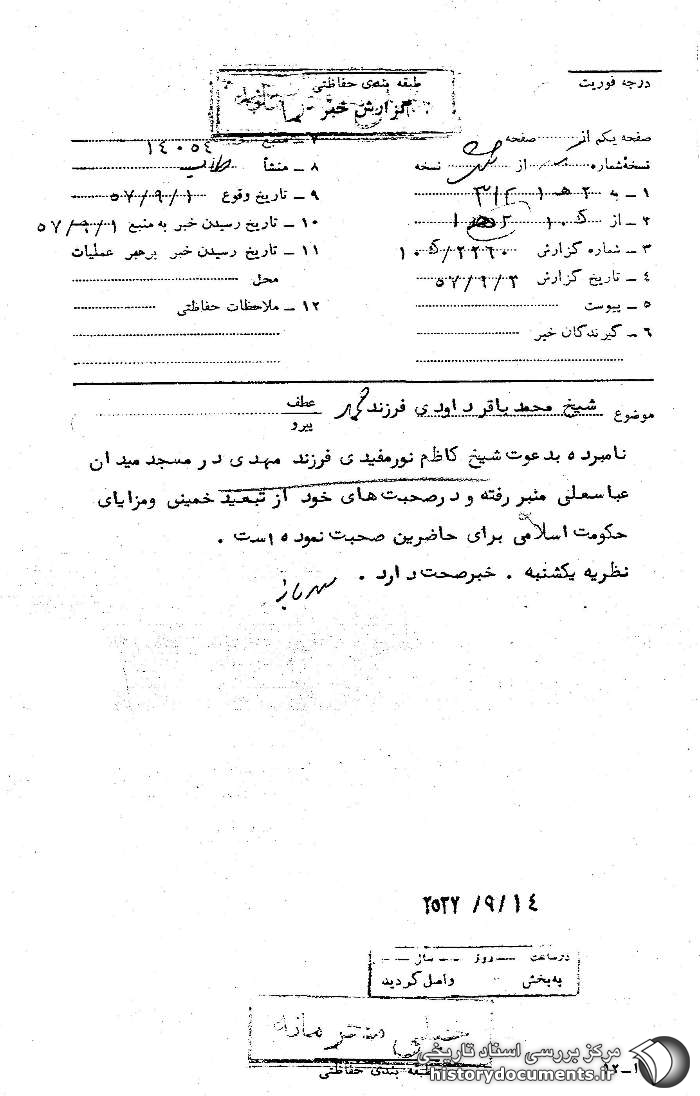 درجه فوریت
طبقه بندی حفاظتی
گزارش خبر
صفحه یکم از صفحه
نسخهٔ شماره از نسخه
۱ – به ۲ هـ ۱ ۳۱۲
۲ – از ۱۰ ک
۳ – شماره گزارش ۱۰ ک/۲۲۶۰
۴ – تاریخ گزارش ۵۷/۹/۳
۵ – پیوست
۶ – گیرندگان خبر
۷ – منبع ۱۴۰۵۴
۸ – منشأ
۹ – تاریخ وقوع ۵۷/۹/۱
۱۰ – تاریخ رسیدن خبر به منبع ۵۷/۹/۱
۱۱ – تاریخ رسیدن خبر برهبر عملیات
محل
۱۲ – ملاحظات حفاظتی
موضوع شیخ محمد باقر داودی فرزند
عطف
پیرو
نامبرده بدعوت شیخ کاظم نورمفیدی فرزند مهدی در مسجد میدان
عباسعلی منبر رفته و درصحبت های خود از تبعید خمینی ومزایای
حکومت اسلامی برای حاضرین صحبت نموده است .
نظریه یکشنبه . خبرصحت دارد .
۲۵۳۷ /۹/۱۴
درساعت روز سال
به بخش واصل گردید
خیلی محرمانه
طبقه بندی حفاظتی
۱–۱۲
مرکز بررسی اسناد تاریخی
historydocuments.ir